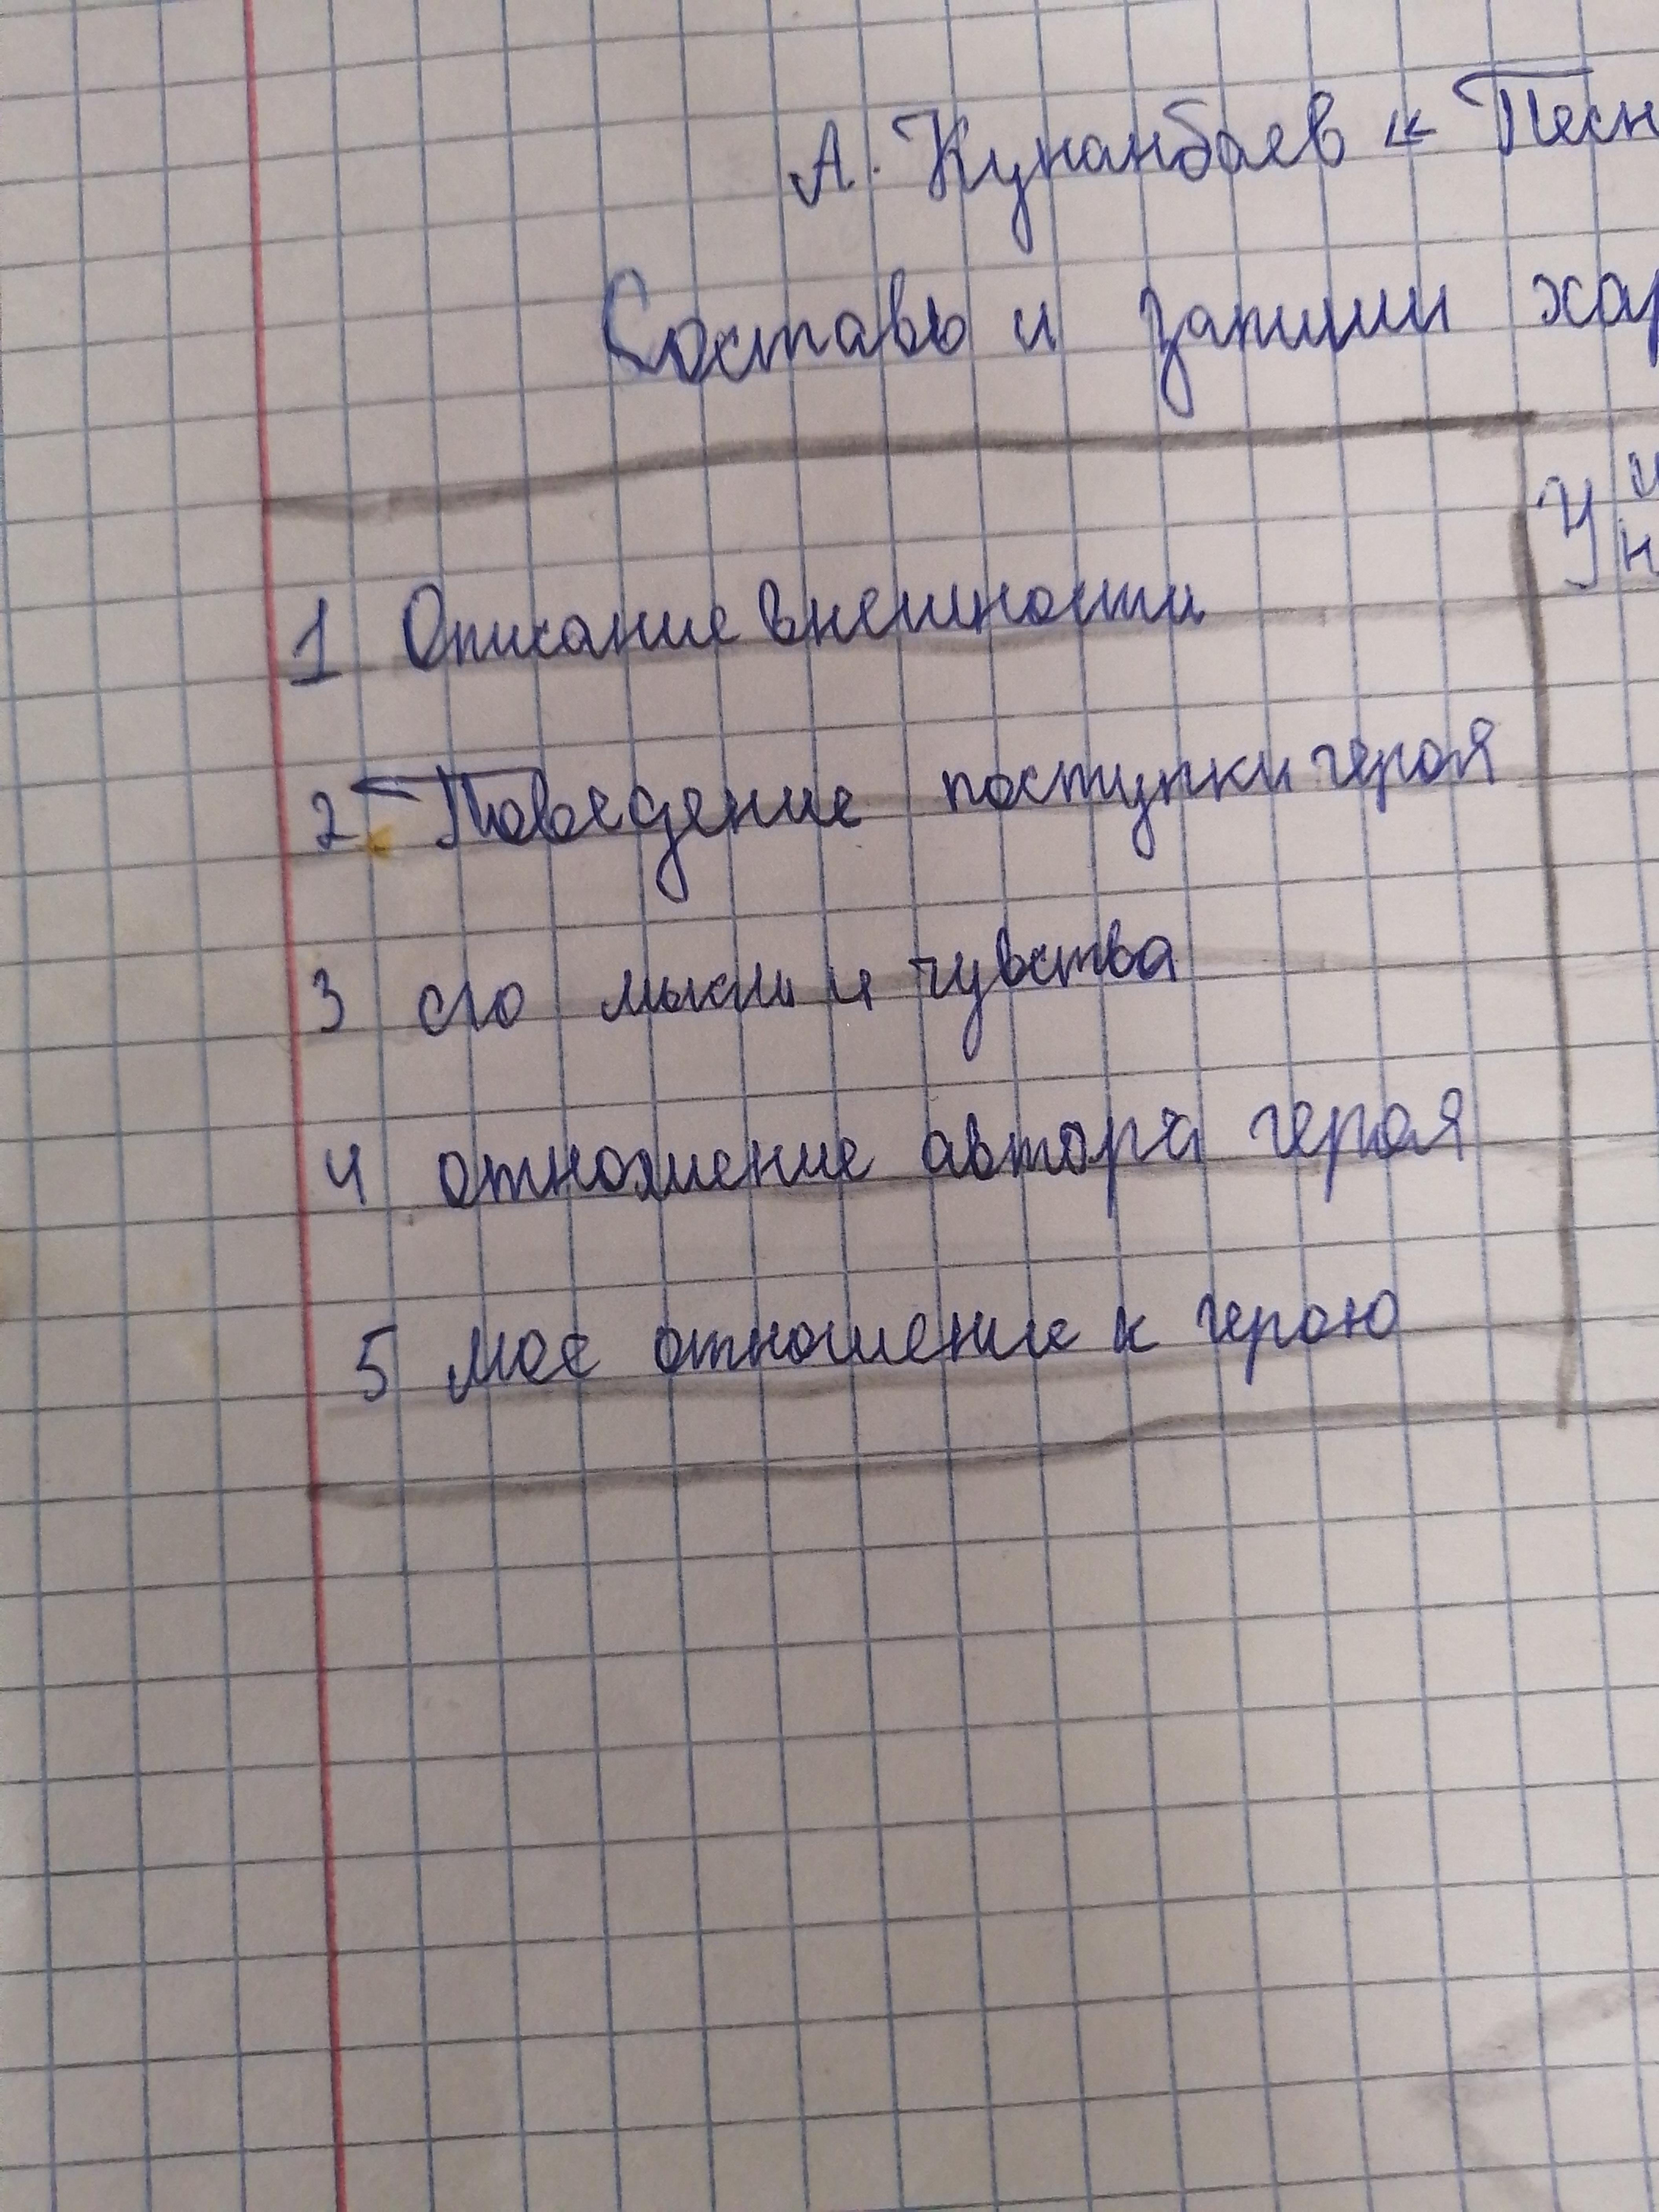 А. Кунанбаев « Песн
Составь и запиши хар
1 Описание внешности
2. Поведение поступки героя
3 его мысли и чувства
4 отношение автора героя
5 мое отношение к герою